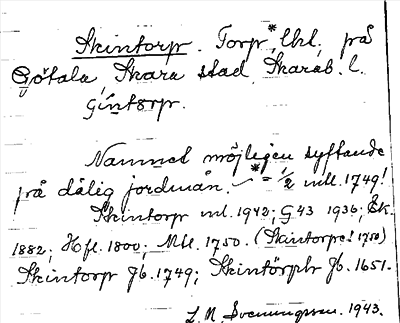 Skintorp. Torp,* lht, på
Götala Skara stad Skarab. l.
Namnet möjligen syftande
på dålig jordmån. — * = 1/2 mtl. 1749!
Skintorp ml. 1942; G 43 1936; Ek.
1882; Hfl. 1800; Mtl. 1750. (Skintorpe! 1750)
Skintorp Jb. 1749; Skintörph Jb. 1651.
L. M. Svenungsson. 1943.